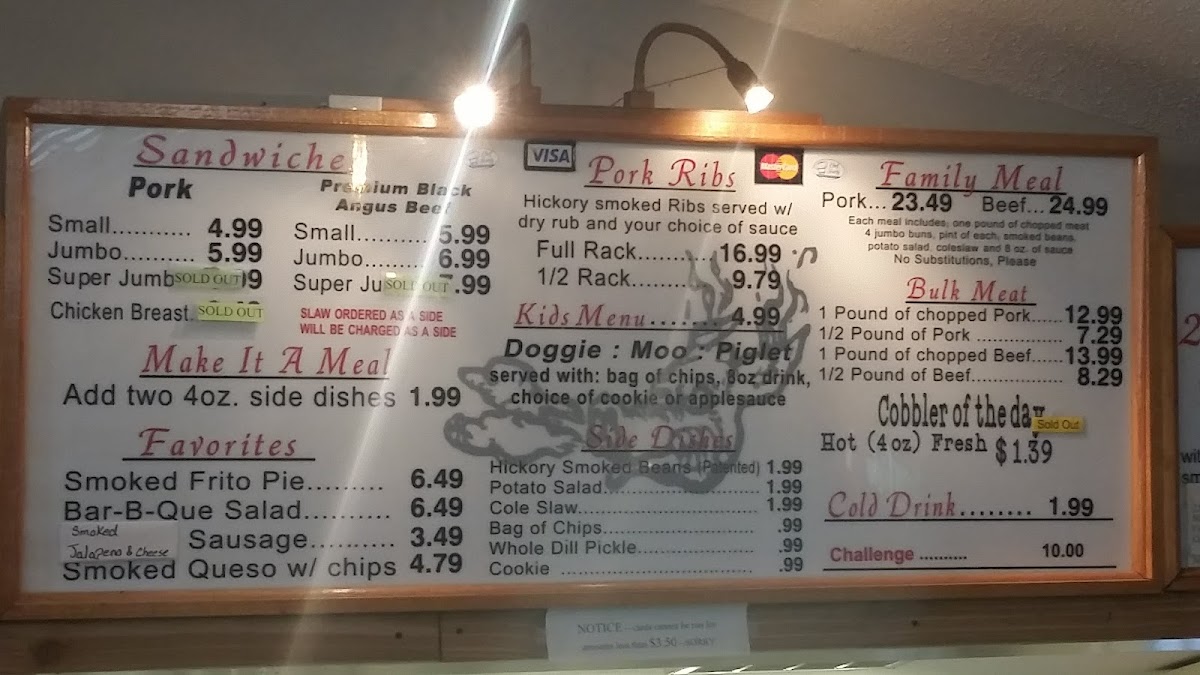 Sandwiche
Pork
Small........... 4.99
Jumbo.......... 5.99
Super Jumb SOLD OUT 9
Chicken Breast. SOLD OUT
Premium Black
Angus Beef
Small.......... 5.99
Jumbo......... 6.99
Super Ju SOLD OUT .99
SLAW ORDERED AS A SIDE
WILL BE CHARGED AS A SIDE
Make It A Meal
Add two 4oz. side dishes 1.99
Favorites
Smoked Frito Pie......... 6.49
Bar-B-Que Salad.......... 6.49
Smoked
Jalapeno & Cheese
Sausage.......... 3.49
Smoked Queso w/ chips 4.79
VISA
MasterCard
Pork Ribs
Hickory smoked Ribs served w/
dry rub and your choice of sauce
Full Rack..........16.99
1/2 Rack.......... 9.79
Kids Menu........ 4.99
Doggie : Moo : Piglet
served with: bag of chips, 8oz drink,
choice of cookie or applesauce
Side Dishes
Hickory Smoked Beans (Patented) 1.99
Potato Salad.......................... 1.99
Cole Slaw.............................. 1.99
Bag of Chips.......................... .99
Whole Dill Pickle..................... .99
Cookie ................................ .99
Family Meal
Pork... 23.49 Beef... 24.99
Each meal includes; one pound of chopped meat
4 jumbo buns, pint of each, smoked beans,
potato salad, coleslaw and 8 oz. of sauce
No Substitutions, Please
Bulk Meat
1 Pound of chopped Pork......12.99
1/2 Pound of Pork ............... 7.29
1 Pound of chopped Beef......13.99
1/2 Pound of Beef................. 8.29
Cobbler of the day
Sold Out
Hot (4 oz) Fresh $1.39
Cold Drink........ 1.99
Challenge .......... 10.00
NOTICE
amounts less than $3.50 - SORRY
2
wit
sm